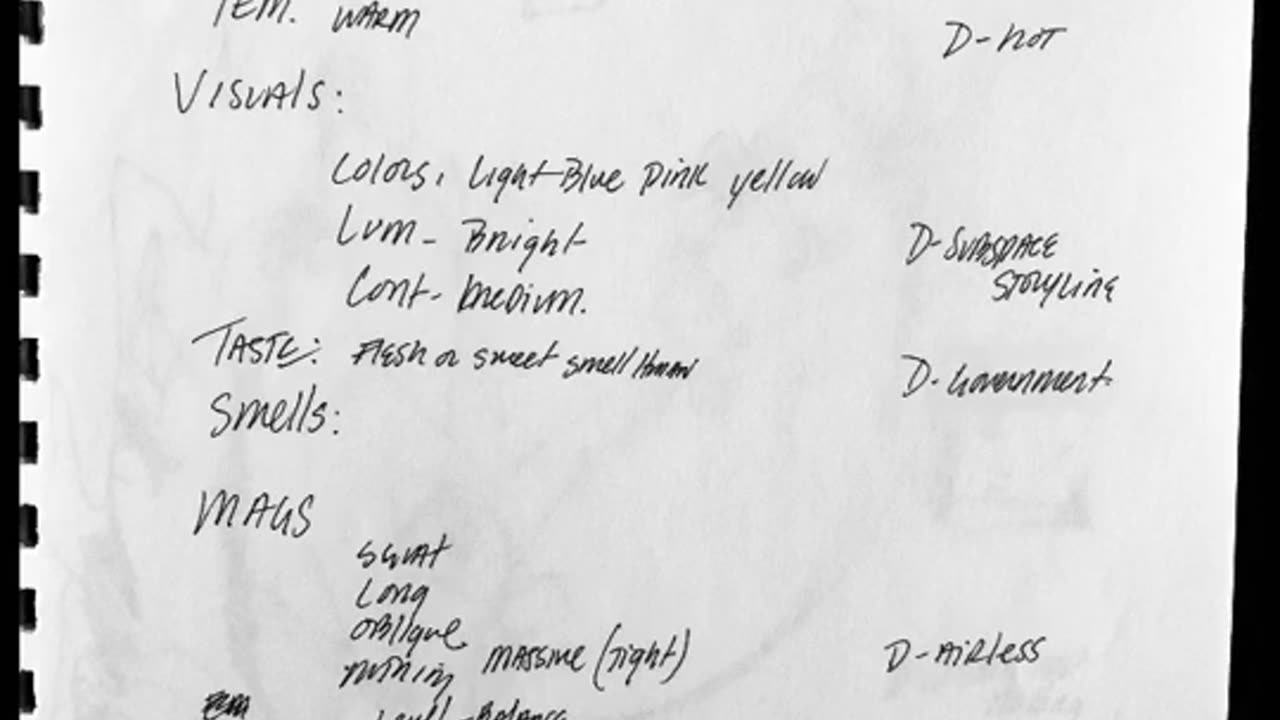 TEM. WARM
D-HOT
VISUALS:
Colors, Light-Blue Pink yellow
Lum- Bright
D-SUBSPACE
STORYLINE
Cont- Medium.
TASTE: FLESH or sweet smell Human
D-Government
Smells:
MAGS
SQUAT
Long
OBLIQUE
MASSIVE (right)
D-AIRLESS
Level-Balance